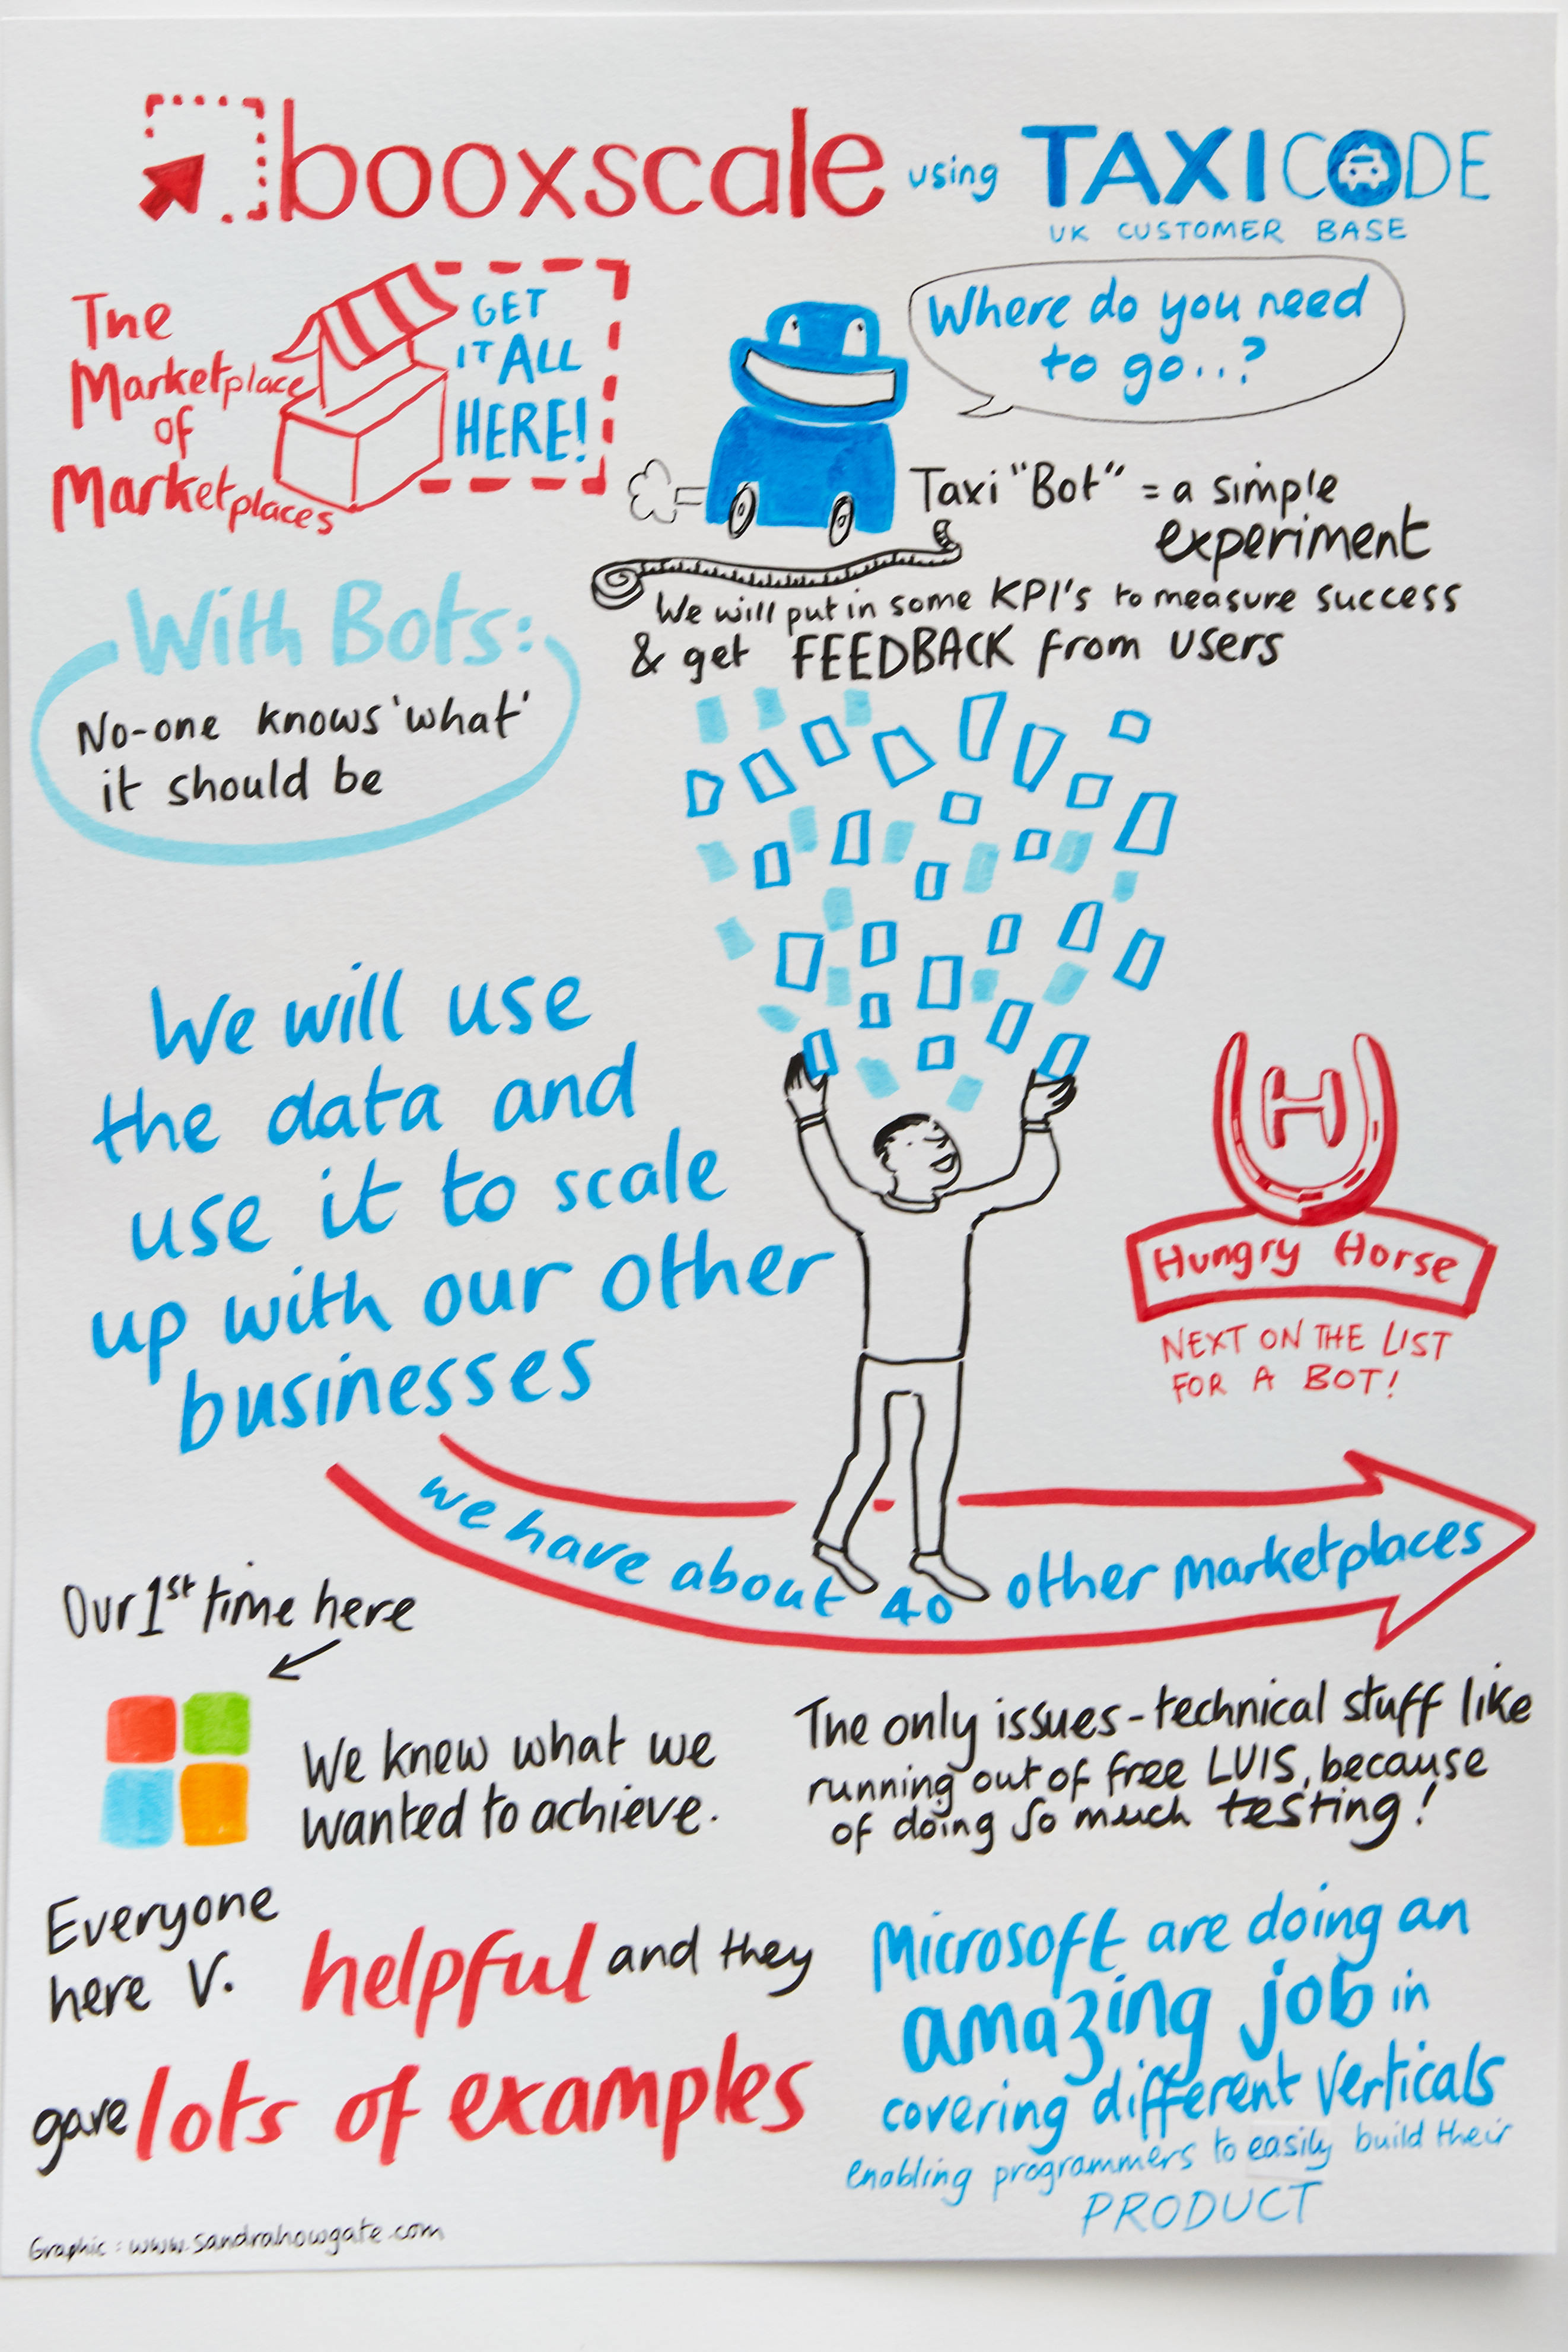 booxscale using TAXICODE
UK CUSTOMER BASE
The
Marketplace
of
Marketplaces
GET
IT ALL
HERE!
Where do you need
to go..?
Taxi "Bot" = a simple
experiment
We will put in some KPI's to measure success
& get FEEDBACK from users
With Bots:
No-one knows 'what'
it should be
We will use
the data and
use it to scale
up with our other
businesses
H
Hungry Horse
NEXT ON THE LIST
FOR A BOT!
we have about 40 other marketplaces
Our 1st time here
We knew what we
wanted to achieve.
The only issues - technical stuff like
running out of free LUIS, because
of doing so much testing!
Everyone
here V. helpful and they
gave lots of examples
Microsoft are doing an
amazing job in
covering different verticals
enabling programmers to easily build their
PRODUCT
Graphic: www.sandrahowgate.com